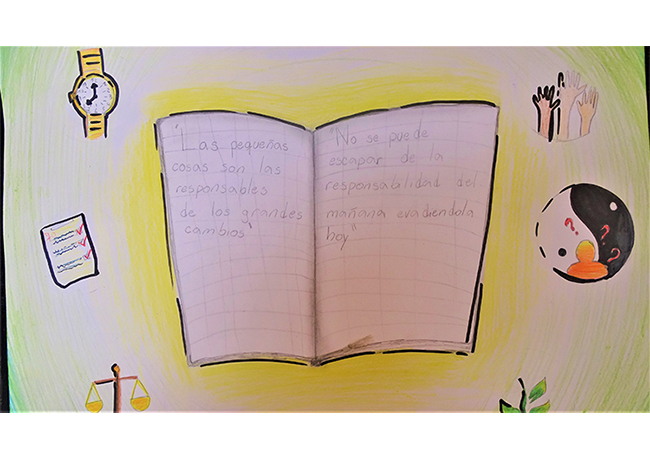 "Las pequeñas
cosas son las
responsables
de los grandes
cambios"
"No se puede
escapar de la
responsabilidad del
mañana evadiendola
hoy"
? ? ?